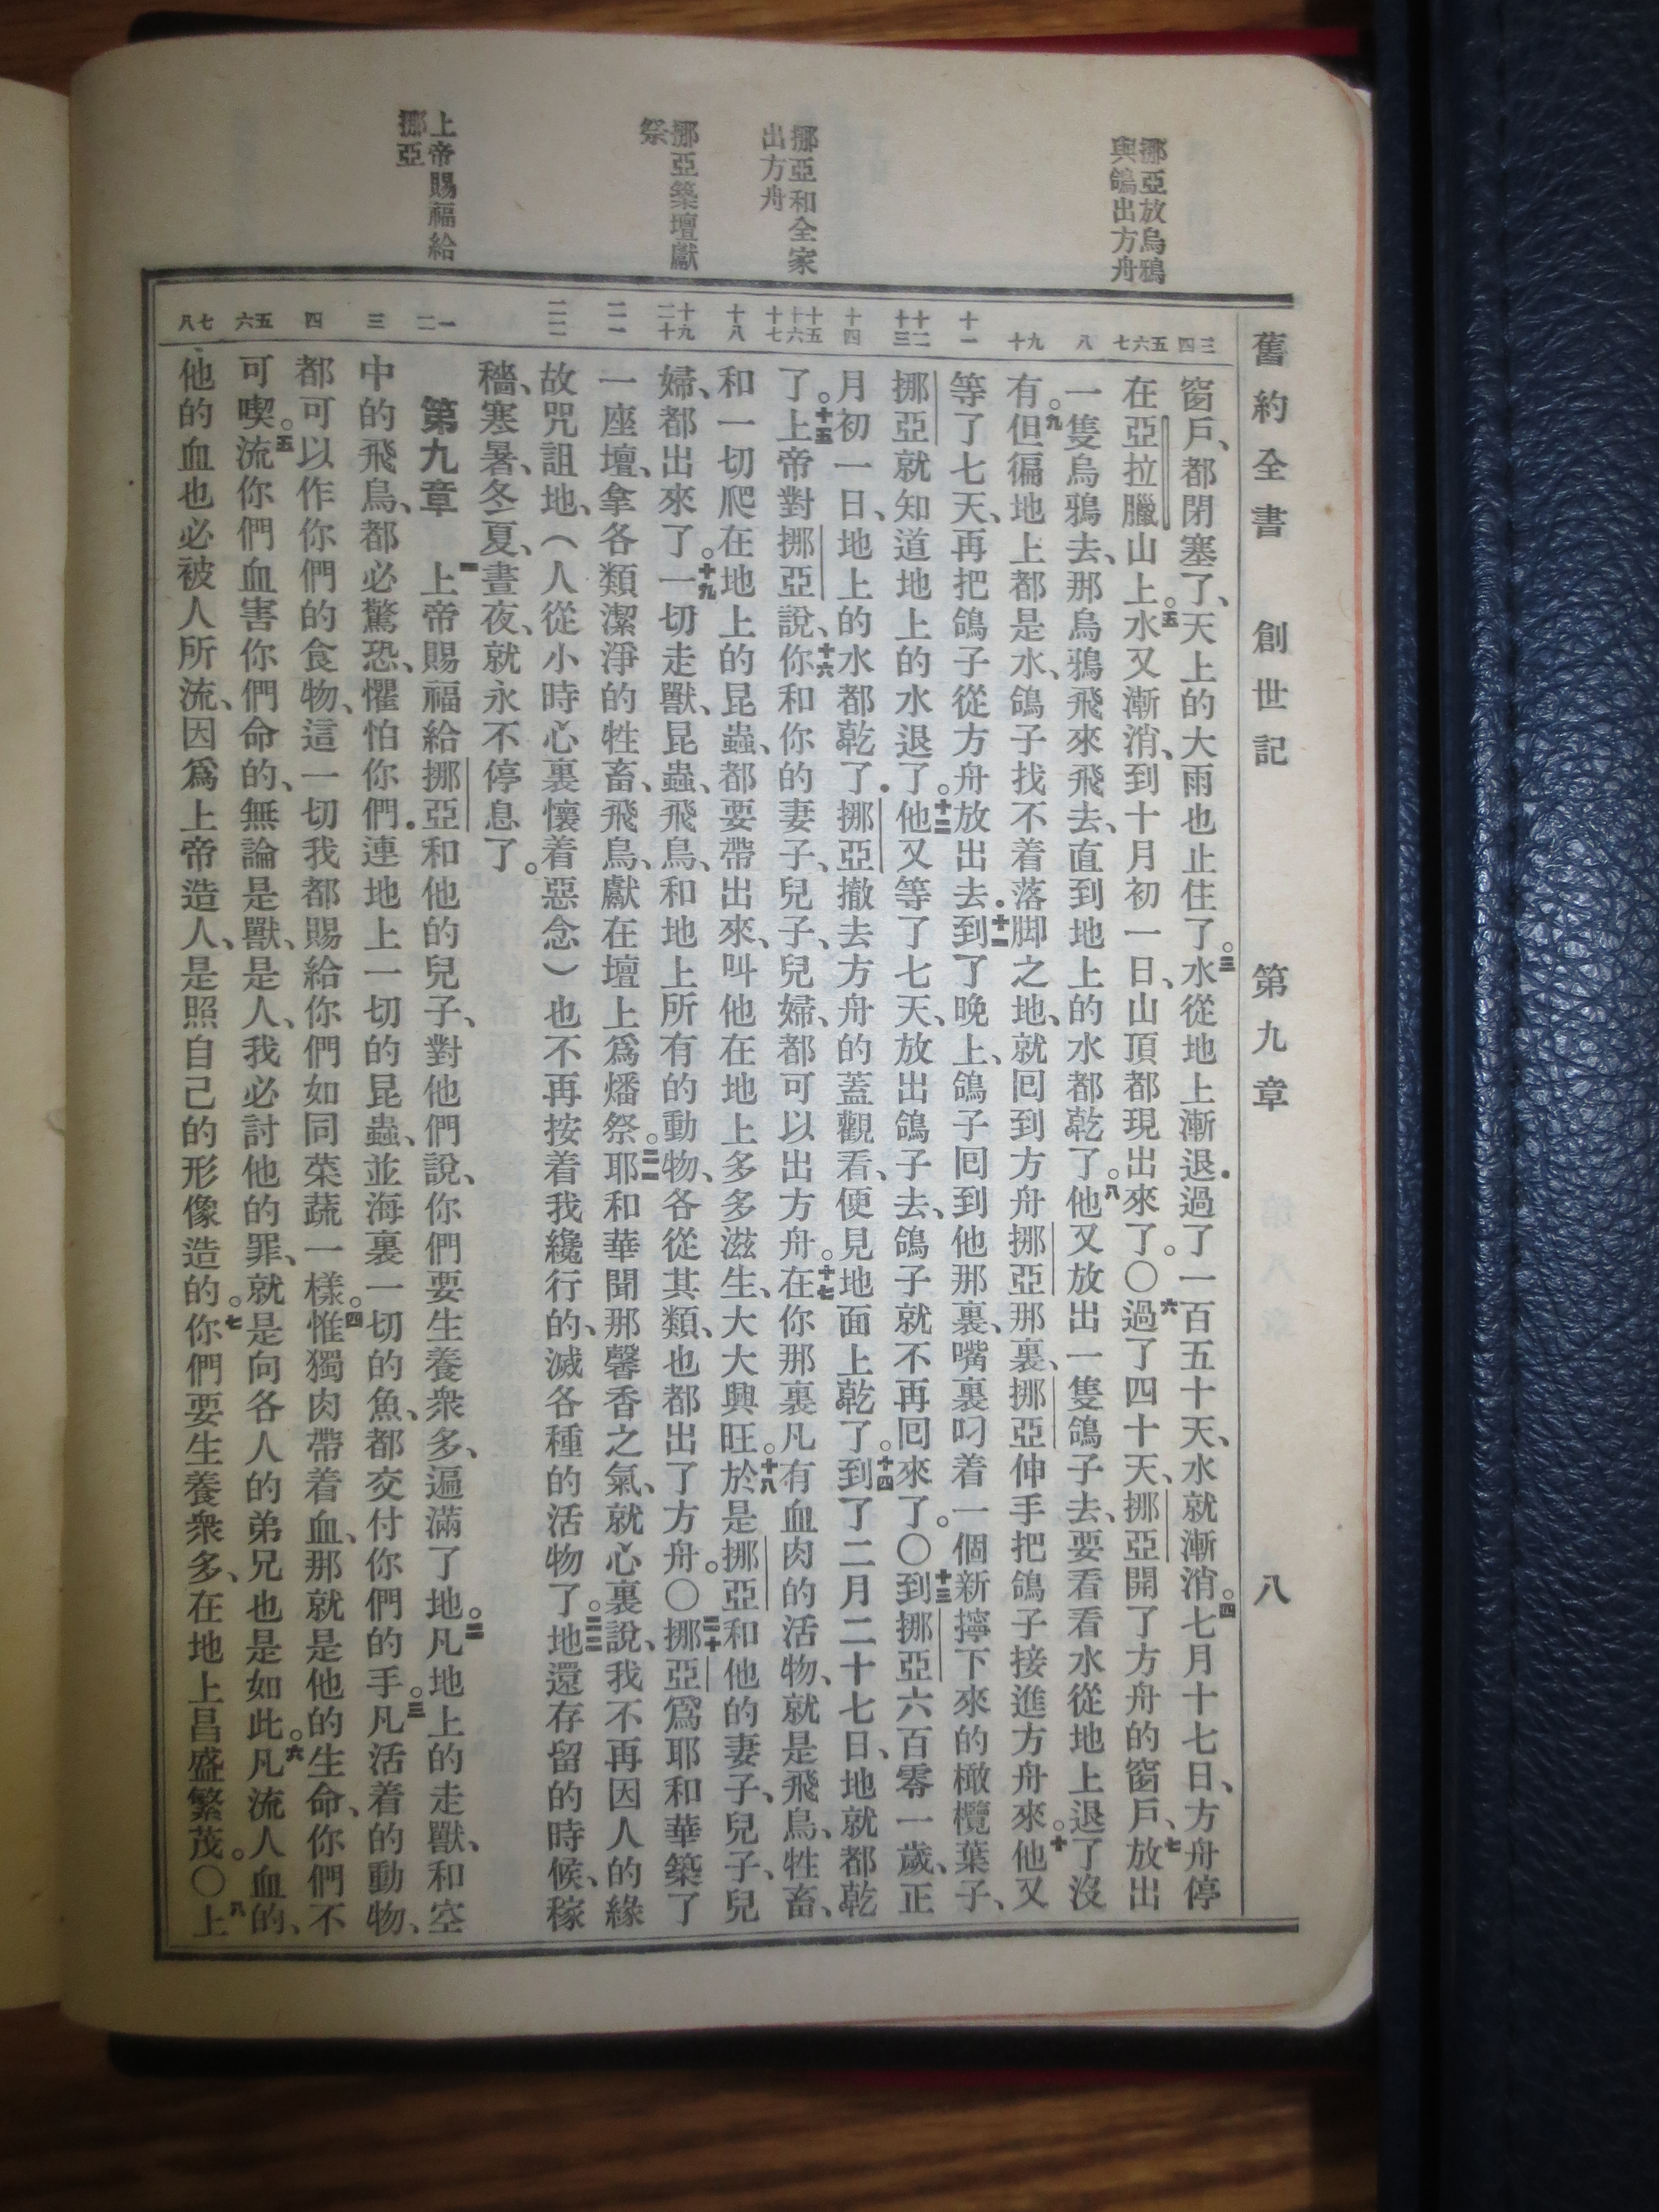 舊約全書 創世記 第九章 八
挪亞放烏鴉
與鴿出方舟
挪亞和全家
出方舟
挪亞築壇獻
祭
上帝賜福給
挪亞
三 四
五 六 七
八
九 十
十一
十二 十三
十四
十五 十六 十七
十八
十九 二十
二一
二二
一 二
三
四
五 六
七 八
窗戶、都閉塞了、天上的大雨也止住了。三水從地上漸退．過了一百五十天、水就漸消。四七月十七日、方舟停
在亞拉臘山上。五水又漸消、到十月初一日、山頂都現出來了。○六過了四十天、挪亞開了方舟的窗戶、七放出
一隻烏鴉去、那烏鴉飛來飛去、直到地上的水都乾了。八他又放出一隻鴿子去、要看看水從地上退了沒
有。九但徧地上都是水、鴿子找不着落脚之地、就回到方舟挪亞那裏、挪亞伸手把鴿子接進方舟來。十他又
等了七天、再把鴿子從方舟放出去．十一到了晚上、鴿子回到他那裏、嘴裏叼着一個新擰下來的橄欖葉子、
挪亞就知道地上的水退了。十二他又等了七天、放出鴿子去、鴿子就不再回來了。○十三到挪亞六百零一歲、正
月初一日、地上的水都乾了．挪亞撤去方舟的蓋觀看、便見地面上乾了。十四到了二月二十七日、地就都乾
了。十五上帝對挪亞說、十六你和你的妻子、兒子、兒婦、都可以出方舟。十七在你那裏凡有血肉的活物、就是飛鳥、牲畜、
和一切爬在地上的昆蟲、都要帶出來、叫他在地上多多滋生、大大興旺。十八於是挪亞和他的妻子、兒子、兒
婦、都出來了。十九一切走獸、昆蟲、飛鳥、和地上所有的動物、各從其類、也都出了方舟。○二十挪亞爲耶和華築了
一座壇、拿各類潔淨的牲畜、飛鳥、獻在壇上爲燔祭。二一耶和華聞那馨香之氣、就心裏說、我不再因人的緣
故咒詛地、（人從小時心裏懷着惡念）也不再按着我纔行的、滅各種的活物了。二二地還存留的時候、稼
穡、寒暑、冬夏、晝夜、就永不停息了。
第九章 一上帝賜福給挪亞和他的兒子、對他們說、你們要生養衆多、遍滿了地。二凡地上的走獸、和空
中的飛鳥、都必驚恐、懼怕你們．連地上一切的昆蟲、並海裏一切的魚、都交付你們的手。三凡活着的動物、
都可以作你們的食物、這一切我都賜給你們如同菜蔬一樣。四惟獨肉帶着血、那就是他的生命、你們不
可喫。五流你們血害你們命的、無論是獸、是人、我必討他的罪、就是向各人的弟兄也是如此。六凡流人血的、
他的血也必被人所流、因爲上帝造人、是照自己的形像造的。七你們要生養衆多、在地上昌盛繁茂。○八上